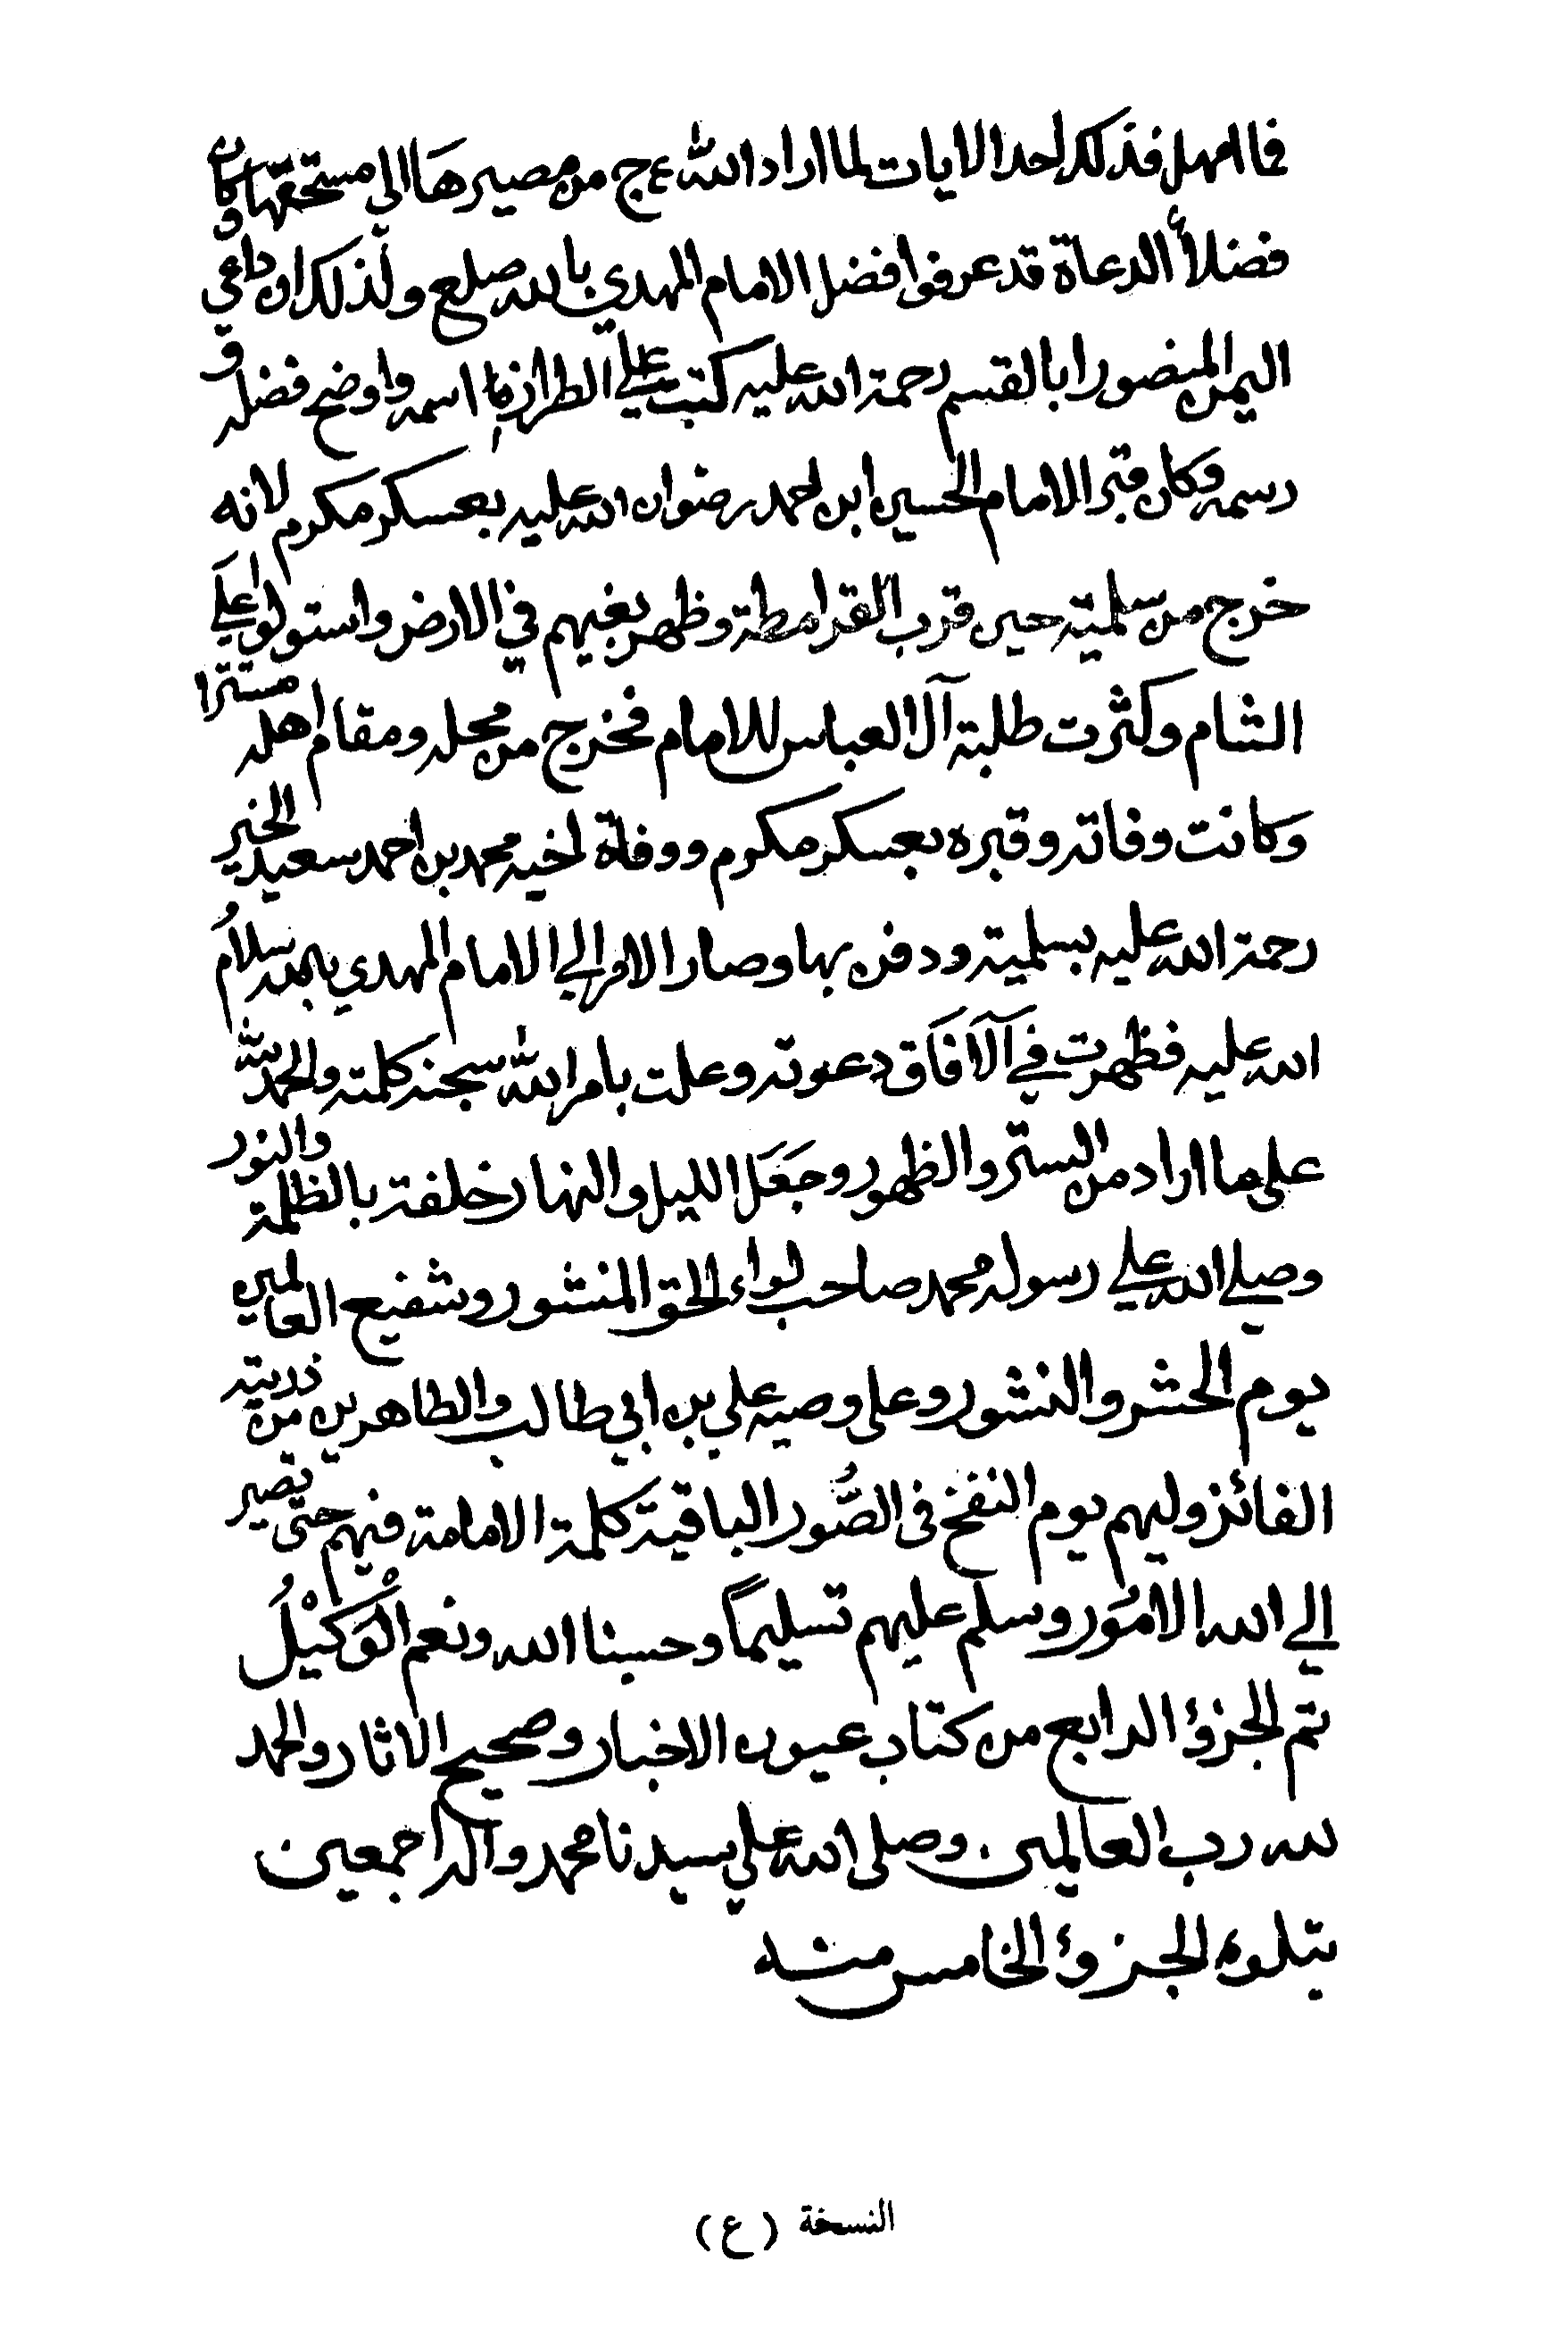 فما امهل فذلك احد الايات لما اراد الله ع ج من مصيرها الي مستحقها وكان
فضلاء الدعاة قد عرفوا فضل الامام المهدي بالله صلع ولذلك ان داعي
اليمن المنصور ابا القسم رحمة الله عليه كتب علي الطراز اسمه واوضح فضله و
رسمه وكان قبر الامام الحسين ابن احمد رضوان الله عليه بعسكر مكرم لانه
خرج من سلمية حين قرب القرامطة وظهر بغيهم في الارض واستولوا علي
الشام وكثرت طلبة آل العباس للامام فخرج من محله ومقام اهله مستترا
وكانت وفاته وقبره بعسكر مكرم ووفاة اخيه محمد بن احمد سعيد الخير
رحمة الله عليه بسلمية ودفن بها وصار الامر الي الامام المهدي بالله سلامُ
الله عليه فظهرت في الآفاق دعوته وعلت بامر الله سبحنه كلمته والحمد لله
على ما اراد من الستر والظهور وجَعَل الليل والنهار خلفة بالظلمة والنور
وصلي الله علي رسوله محمد صاحب لواء الحق المنشور وشفيع العالمين
يوم الحشر والنشور وعلى وصيه علي بن ابي طالب والطاهرين من ذريته
الفائز وليهم يوم النفخ فى الصُّور الباقية كلمة الامامة فيهم حتى تصير
الي الله الامُور وسلم عليهم تسليماً وحسبنا الله ونعم الْوَكيْلُ
تم الجزؤ الرابع من كتاب عيون الاخبار وصحيح الاثار والحمد
لله رب العالمين وصلى الله علي سيدنا محمد واله اجمعين
يتلوه الجزؤ الخامس منه
النسخة (ع)